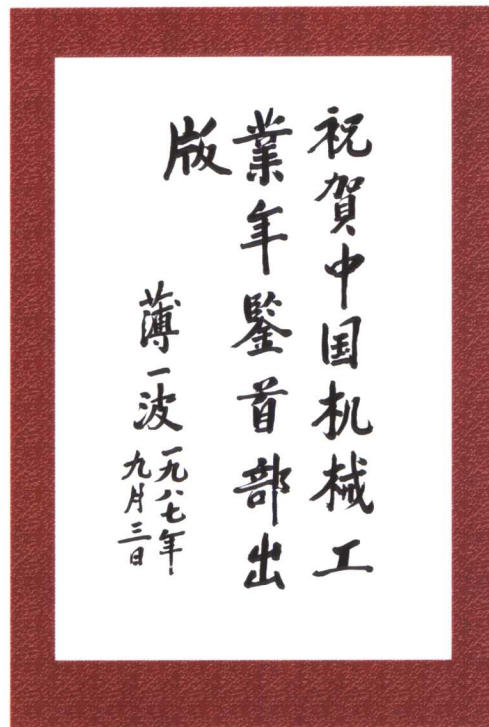 祝賀中国机械工
業年鑒首部出
版
薄一波
一九八七年
九月三日